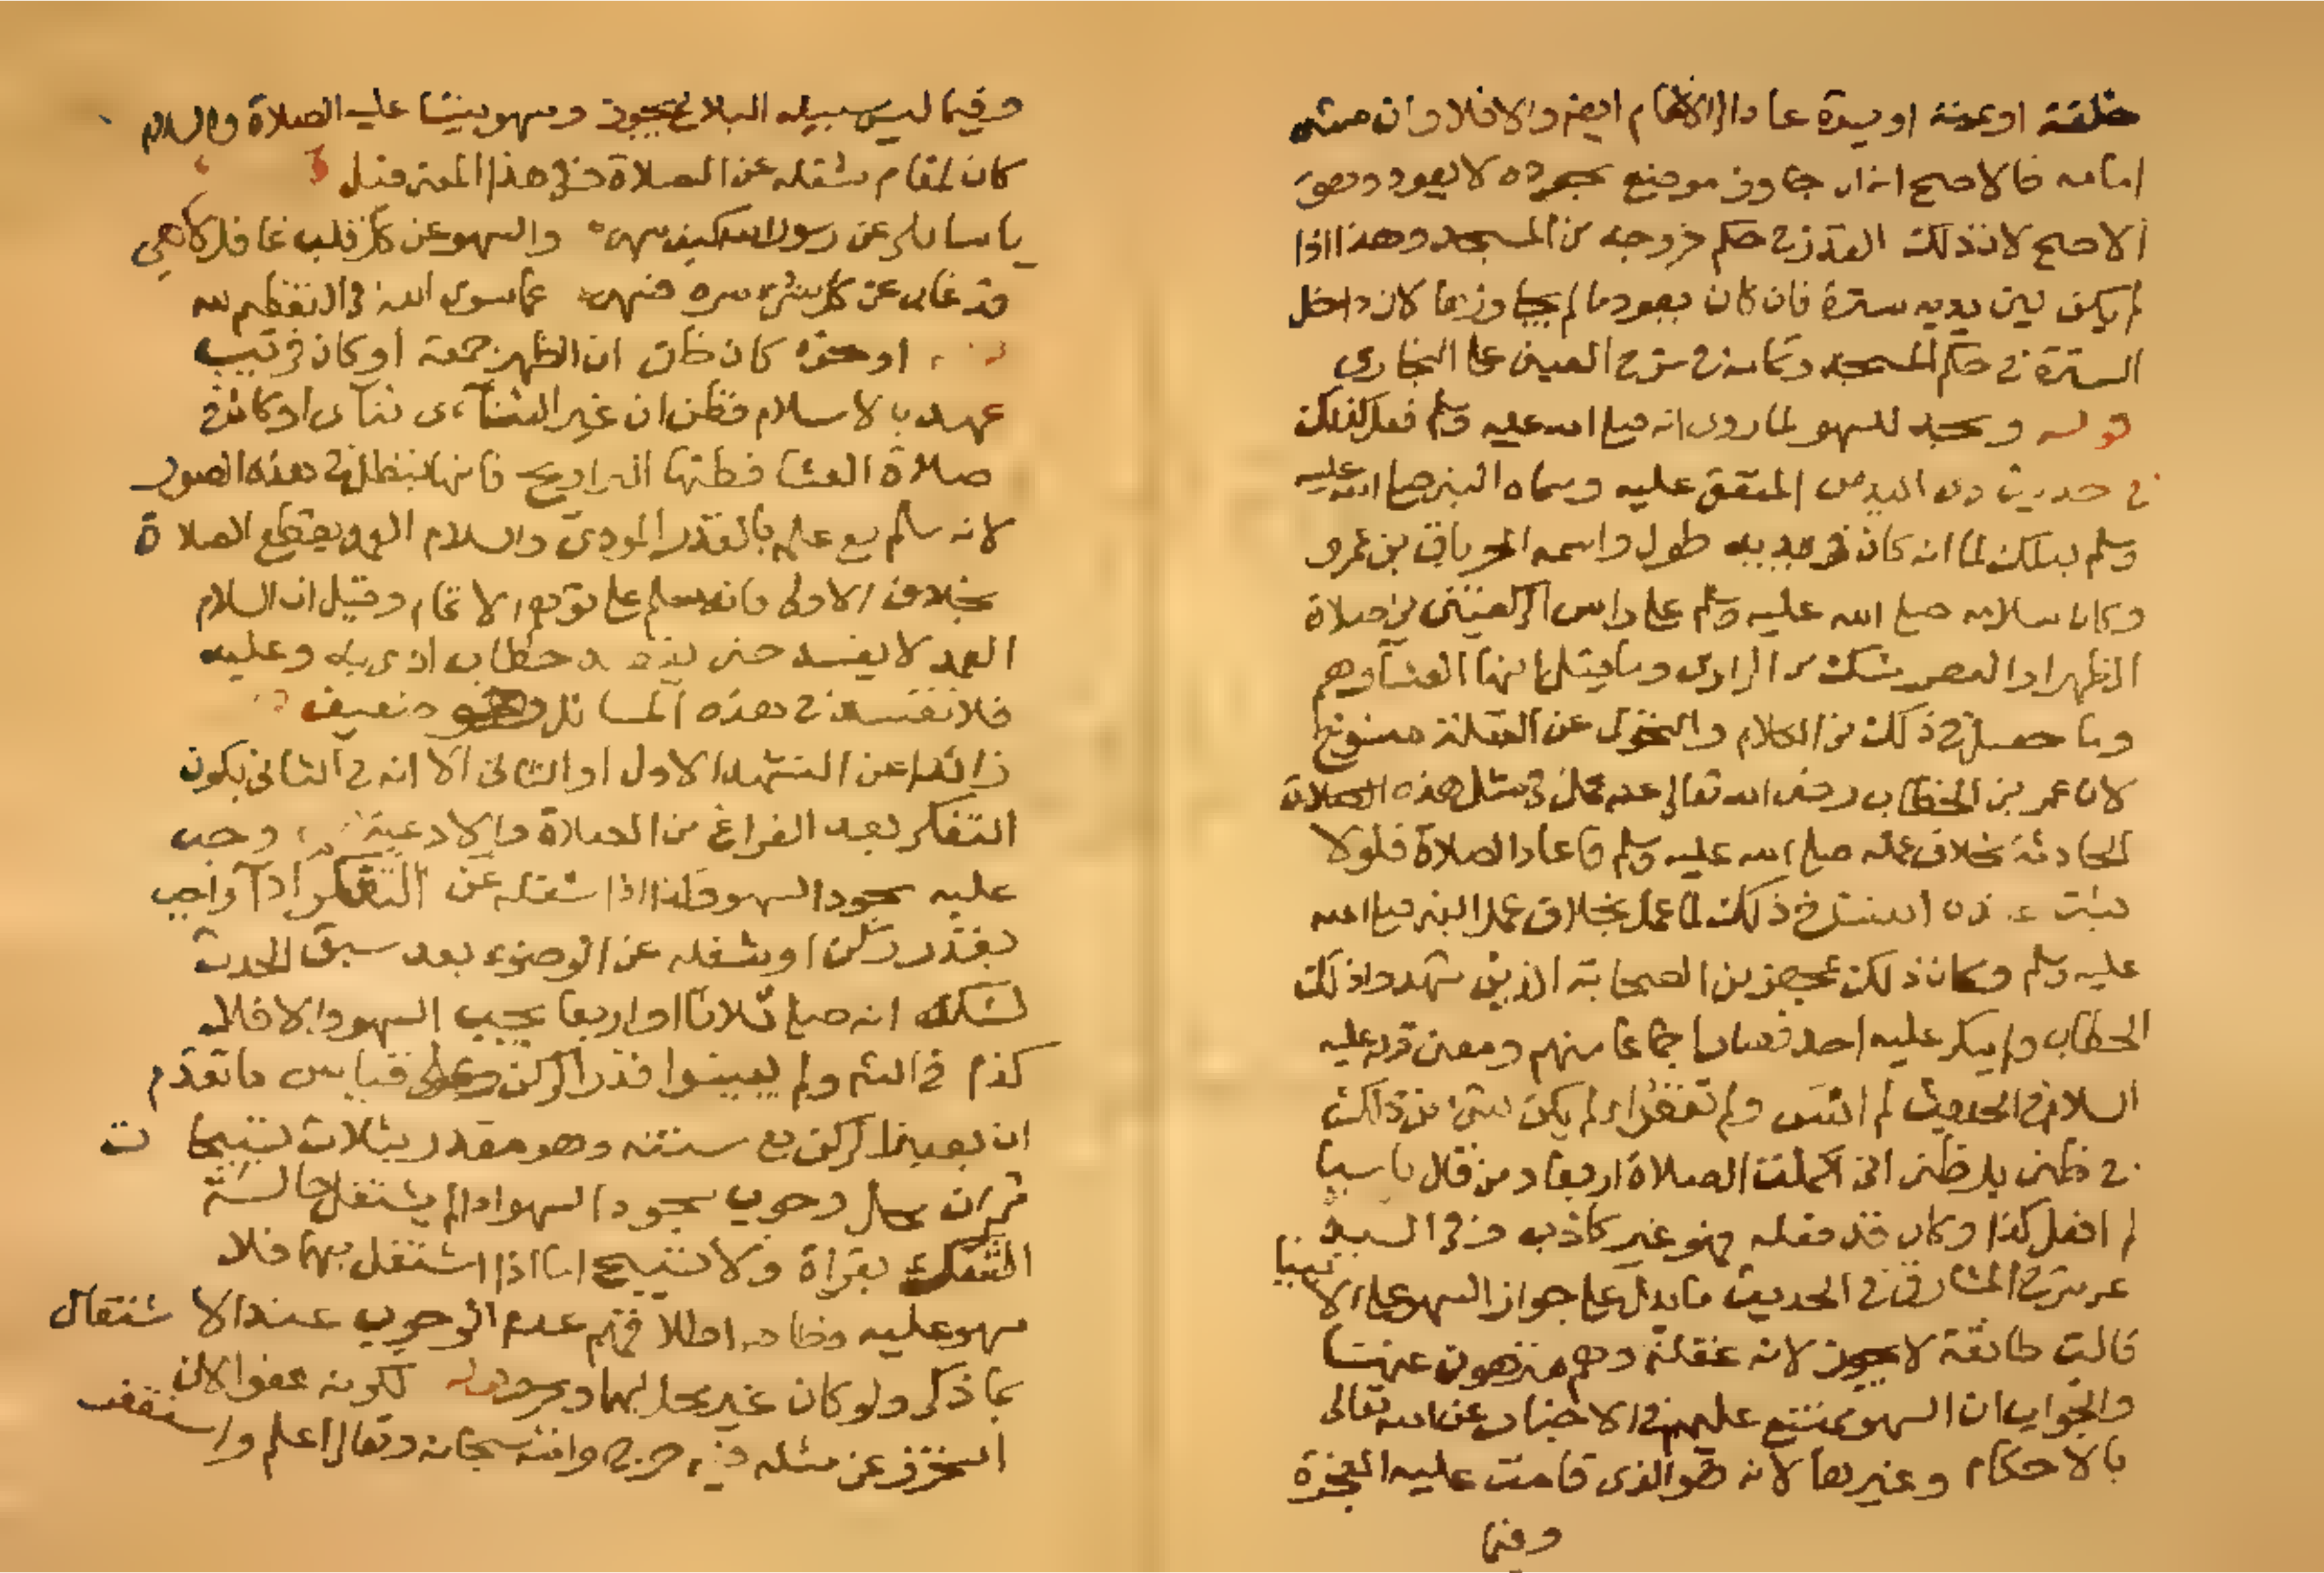 خلفه او يمنة او يسرة عاد الى الاتمام ايضا والا فلا وان مشى
امامه فالاصح انه ان جاوز موضع سجوده لا يعود وهو
الاصح لان ذلك القدر في حكم خروجه من المسجد وهذا اذا
لم يكن بين يديه سترة فان كان يعود ما لم يجاوزها لان داخل
السترة في حكم المسجد وتمامه في شرح العيني على البخاري
قوله ويسجد للسهو لما روى انه صلى الله عليه وسلم فعل كذلك
في حديث ذى اليدين المتفق عليه وسماه النبي صلى الله عليه
وسلم بذلك لما انه كان في يديه طول واسمه الخرباق بن عمرو
وكان سلامه صلى الله عليه وسلم على راس الركعتين من صلاة
الظهر او العصر شك من الراوى وما قيل انها العشا وهم
وما حصل في ذلك من الكلام والتحول عن القبلة منسوخ
لان عمر بن الخطاب رضى الله تعالى عنه عمل في مثل هذه الصلاة
الحادثة بخلاف عمله صلى الله عليه وسلم فاعاد الصلاة فلولا
ثبت عنده انتساخ ذلك لما عمل بخلاف عمل النبي صلى الله
عليه وسلم وكان ذلك بمحضر من الصحابة الذين شهدوا ذلك
الخطاب ولم ينكر عليه احد فصار اجماعا منهم ومعنى قوله عليه
السلام في الحديث لم انس ولم تقصر اى لم يكن شىء من ذلك
في ظنى بل ظنى انى اكملت الصلاة اربعا ومن قال ناسيا
لم افعل كذا وكان قد فعله فهو غير كاذب
في الحديث ما يدل على جواز السهو على الانبيا
قالت طائفة لا يجوز لانه غفلة وهم منزهون عنها
والجواب ان السهو ممتنع عليهم في الاخبار عن الله تعالى
بالاحكام وغيرها لانه هو الذى قامت عليه المعجزة
وفيما
وفيما ليس سبيله البلاغ يجوز وسهو نبينا عليه الصلاة والسلام
كان لمقام شغله عن الصلاة وفي هذا المعنى قيل
يا سائلى عن رسول الله كيف سهى والسهو عن كل قلب غافل لاهى
قد غاب عن كل شىء سره فسهى عما سوى الله في التعظيم لله
او نحوه كان ظن ان الظهر جمعة او كان قريب
عهد بالاسلام فظن ان او كان في
صلاة العشا فظنها التراويح فانها تبطل في هذه الصور
لانه سلم مع علمه بالقدر المودى والسلام العمد يقطع الصلاة
بخلاف الاولى فانه سلم على توهم الاتمام وقيل ان السلام
العمد لا يفسد حتى يقصد خطاب ادمى به وعليه
فلا تفسد في هذه المسائل وهو ضعيف
زائدا عن التشهد الاول او الثانى الا انه في الثانى يكون
التفكر بعد الفراغ من الصلاة والادعية وجب
عليه سجود السهو فلذا اذا شغله عن التفكر ادآ واجب
بقدر ركن او شغله عن الوضوء بعد سبق الحدث
لشكه انه صلى ثلاثا او اربعا يجب السهو والا فلا
كذا في ولم يبينوا قدر الركن وعلى قياس ما تقدم
ان يعتبر الركن مع سنته وهو مقدر بثلاث تسبيحات
ثم ان محل وجوب سجود السهو اذا لم يشتغل حالة
التفكر بقراة ولا تسبيح اما اذا اشتغل بهما فلا
سهو عليه وظاهر اطلاقهم عدم الوجوب عند الاشتغال
بما ذكر ولو كان غير محل لهما لكونه عفوا لان
التحرز عن مثله فيه حرج والله سبحانه وتعالى اعلم واستغفر